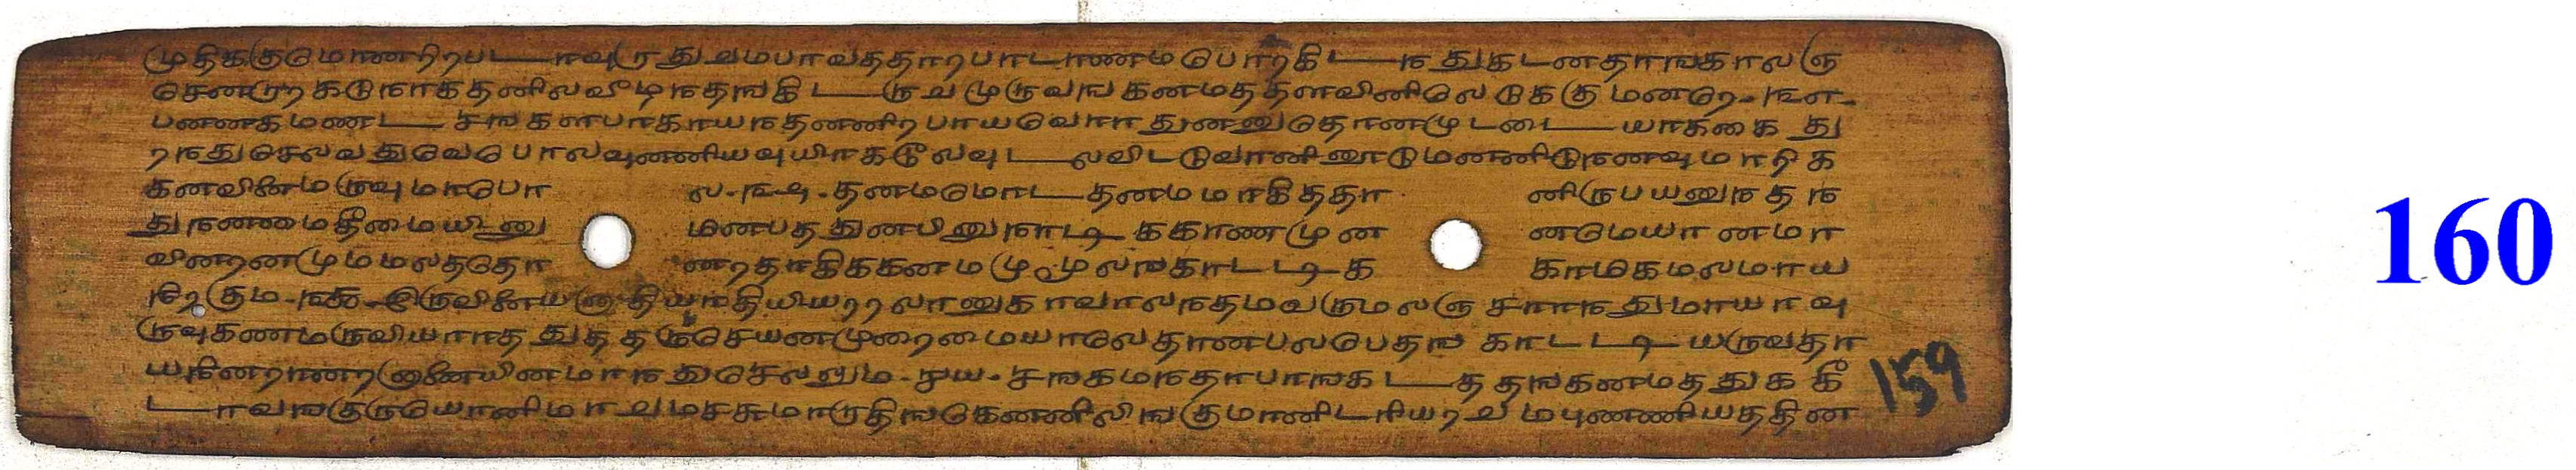 முதிககுமொணறிறபடடாவுரதுவமபாவததாறபாடாணமபொறகிடநதுகடனதாஙகாலஞ
சென றுறகடுநரகதனிலவீழநதஙகிடருவமுருவஙகனமததளவினிலெடுககுமனறே - ௩௭ -
பனனகமணடசஙகளபரகாயநதனனிறபாயவொரதுனனுதோனமுடடையாககைது
றநதுசெலவதுவெபொலவுணணியவுயிரகடூலவுடலவிடடுவானினூடுமணணிடுநனவுமாறிக
கனவினைமருவுமாபோ ல - ௩௮ - தனமமொடதனமமாகிததா னிருபயனுநதந
துநனமைதீமையினு மினபததுனபினுநாடிககாணமுன னமெயானமா
வினறனமுமமலததோ னறதாகிககனமமுமூலஙகாடடிக காமிகமலமாய
நிறகும - ௩௯ - இருவினையனாதியாதியியறறலானுகாவாலநதமவருமலஞசாரநதுமாயாவு
ருவுகணமருவியாரதததுததருசெயனமுறைமையாலேதானபலபெதஙகாடடியருவதா
யநினறானறனனையினமாநதுசெலலும - ௪௰ - சஙகமநதாபரஙகடததஙகனமததுககீ
டாவஙகுருயோனிமாயமசசுமாறுதிஙகெணணிலிஙகுமானிடரியறயமபுணணியததின
159
160